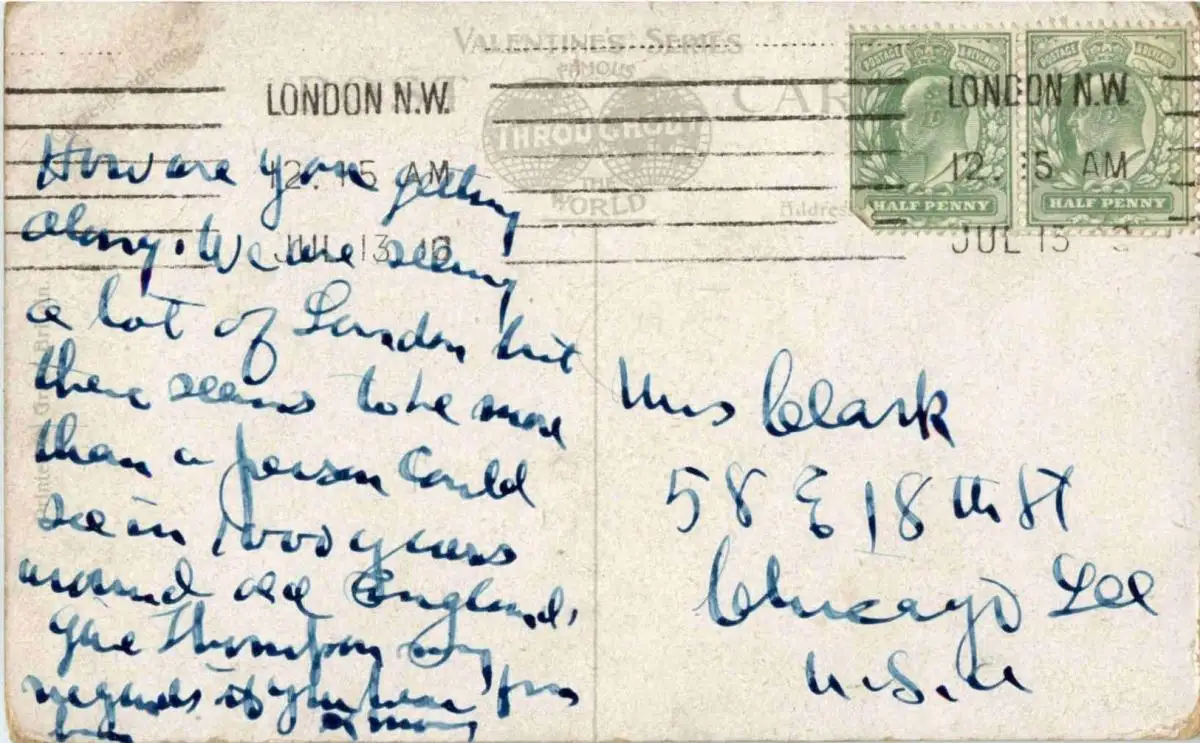 VALENTINE'S SERIES
FAMOUS
THROUGHOUT
THE
WORLD
POST CARD
LONDON N.W.
12.15 AM
JUL 13
LONDON N.W.
12. 15 AM
JUL 13
POSTAGE & REVENUE
HALF PENNY
POSTAGE & REVENUE
HALF PENNY
Correspondence
Address
Printed Great Britain.
How are you getting
along. We are seeing
a lot of London but
there seems to be more
than a person could
see in 1000 years
around old England.
Give Thompson my
regards if you hear from
him
Mrs Clark
58 E 18th St
Chicago Ill
U.S.A